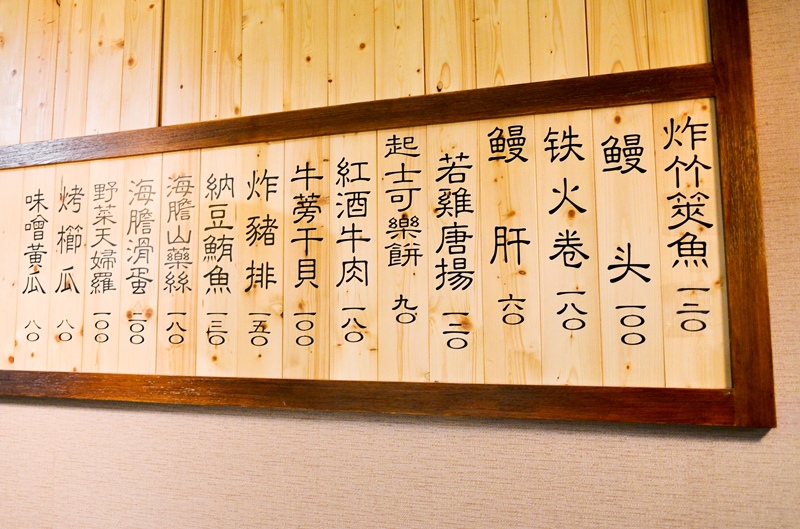 炸竹筴魚 一二〇
鳗头 一〇〇
铁火卷 一八〇
鳗肝 六〇
若雞唐揚 一二〇
起士可樂餅 九〇
紅酒牛肉 一八〇
牛蒡干貝 一〇〇
炸豬排 一五〇
納豆鮪魚 一三〇
海膽山藥絲 一八〇
海膽滑蛋 二〇〇
野菜天婦羅 一〇〇
烤櫛瓜 八〇
味噌黃瓜 八〇